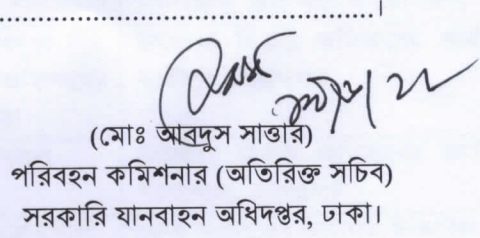 (মোঃ আবদুস সাত্তার)
পরিবহন কমিশনার (অতিরিক্ত সচিব)
সরকারি যানবাহন অধিদপ্তর, ঢাকা।